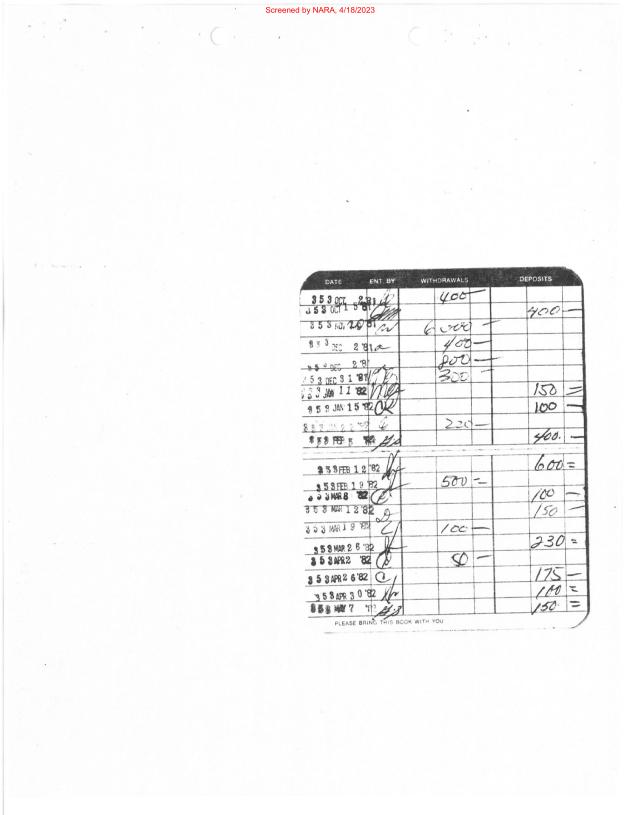 Screened by NARA, 4/18/2023
DATE ENT. BY WITHDRAWALS DEPOSITS
353 OCT 2 81 400 —
353 OCT 15 81 400 —
353 NOV 81 6,000 —
353 DEC 2 '81 400 —
DEC 2 '8 800 —
353 DEC 31 '81 300 —
353 JAN 11 '82 150 =
353 JAN 15 '82 100 —
—
353 FEB 5 '82 400. —
353 FEB 12 '82 600 =
353 FEB 19 '82 500 =
353 MAR 8 '82 100 —
353 MAR 12 '82 150 —
353 MAR 19 '82 100 —
353 MAR 26 '82 230 =
353 APR 2 '82 50 —
353 APR 26 '82 175 —
353 APR 30 '82 100 =
353 MAY 7 150 =
PLEASE BRING THIS BOOK WITH YOU